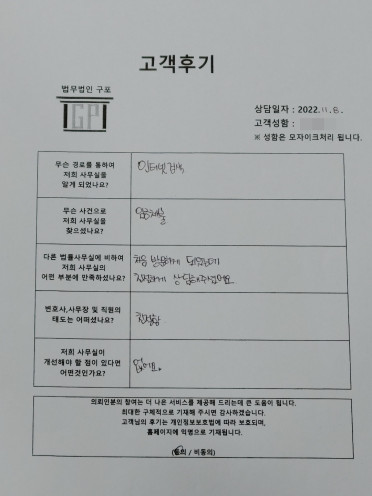 고객후기
법무법인 구포
GP
상담일자 : 2022. 11. 8.
고객성함 :
※ 성함은 모자이크처리 됩니다.
무슨 경로를 통하여
저희 사무실을
알게 되었나요?
인터넷 검색
무슨 사건으로
저희 사무실을
찾으셨나요?
다른 법률사무실에 비하여
저희 사무실의
어떤 부분에 만족하셨나요?
처음 방문하게 되었는데
친절하게 상담해주셨어요
변호사,사무장 및 직원의
태도는 어떠셨나요?
친절함
저희 사무실이
개선해야 할 점이 있다면
어떤것인가요?
없어요.
의뢰인분의 참여는 더 나은 서비스를 제공해 드리는데 큰 도움이 됩니다.
최대한 구체적으로 기재해 주시면 감사하겠습니다.
고객님의 후기는 개인정보보호법에 따라 보호되며,
홈페이지에 익명으로 기재됩니다.
(동의 / 비동의)